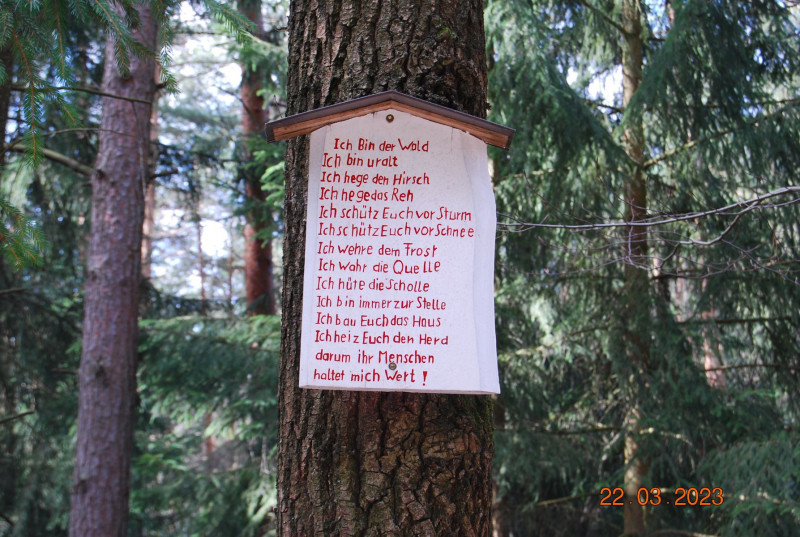 Ich Bin der Wald
Ich bin uralt
Ich hege den Hirsch
Ich hege das Reh
Ich schütz Euch vor Sturm
Ich schütz Euch vor Schnee
Ich wehre dem Frost
Ich wahr die Quelle
Ich hüte die Scholle
Ich bin immer zur Stelle
Ich bau Euch das Haus
Ich heiz Euch den Herd
darum ihr Menschen
haltet mich Wert !
22.03.2023